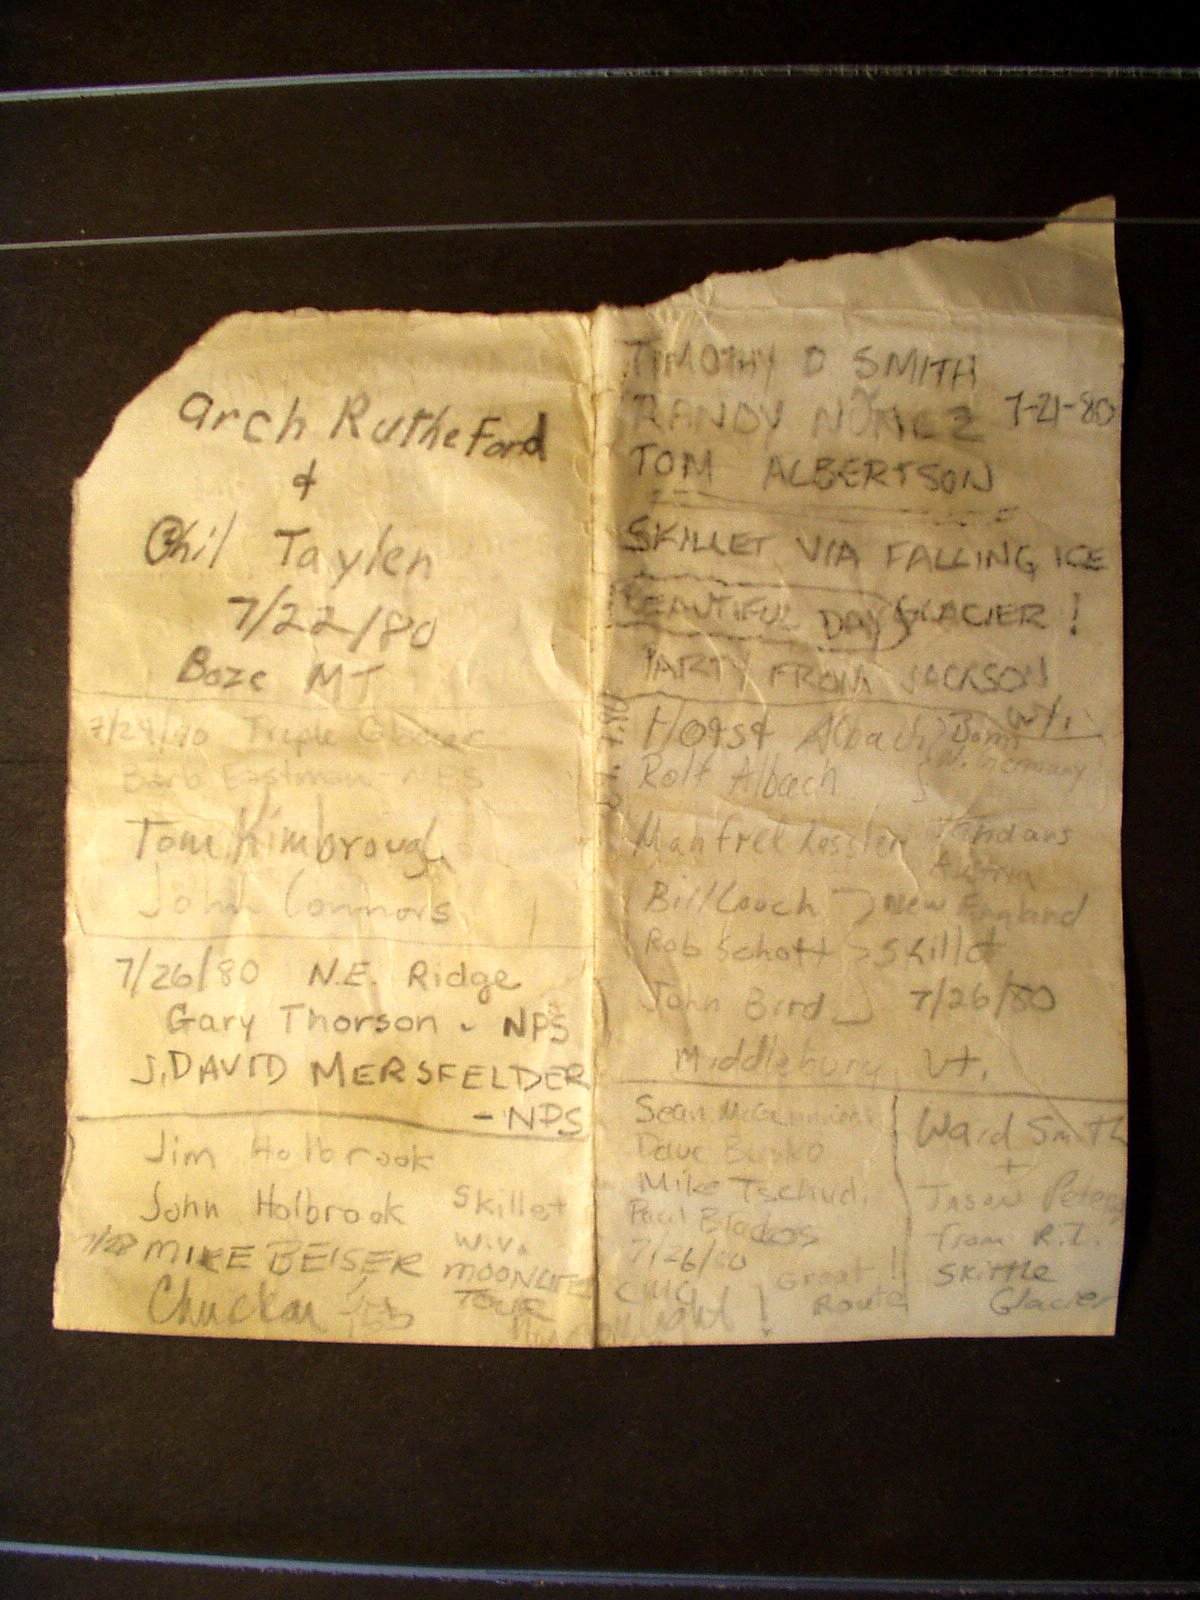 arch RutheFord
&
Phil Taylen
7/22/80
Boze MT
7/24/80 Triple Glacier
Barb Eastman - NPS
Tom Kimbrough
John Connors
7/26/80 N.E. Ridge
Gary Thorson - NPS
J. DAVID MERSFELDER
- NPS
Jim Holbrook
John Holbrook Skillet
MIKE BEISER W.V.
MOONLITE
TOUR
TIMOTHY D SMITH
RANDY NUNEZ 7-21-80
TOM ALBERTSON
SKILLET VIA FALLING ICE
GLACIER !
BEAUTIFUL DAY
PARTY FROM JACKSON
WY.
Horst Albach
Rolf Albach
W. Germany
Austria
Bill Couch New England
Rob Schott Skillet
John Bird 7/26/80
Middlebury Vt.
Sean
Dave Busko
Mike Tschudi
Paul
7/26/80
CMC
Great !!
Route
Ward Smith
+
Jason
from R.I.
Skittle
Glacier